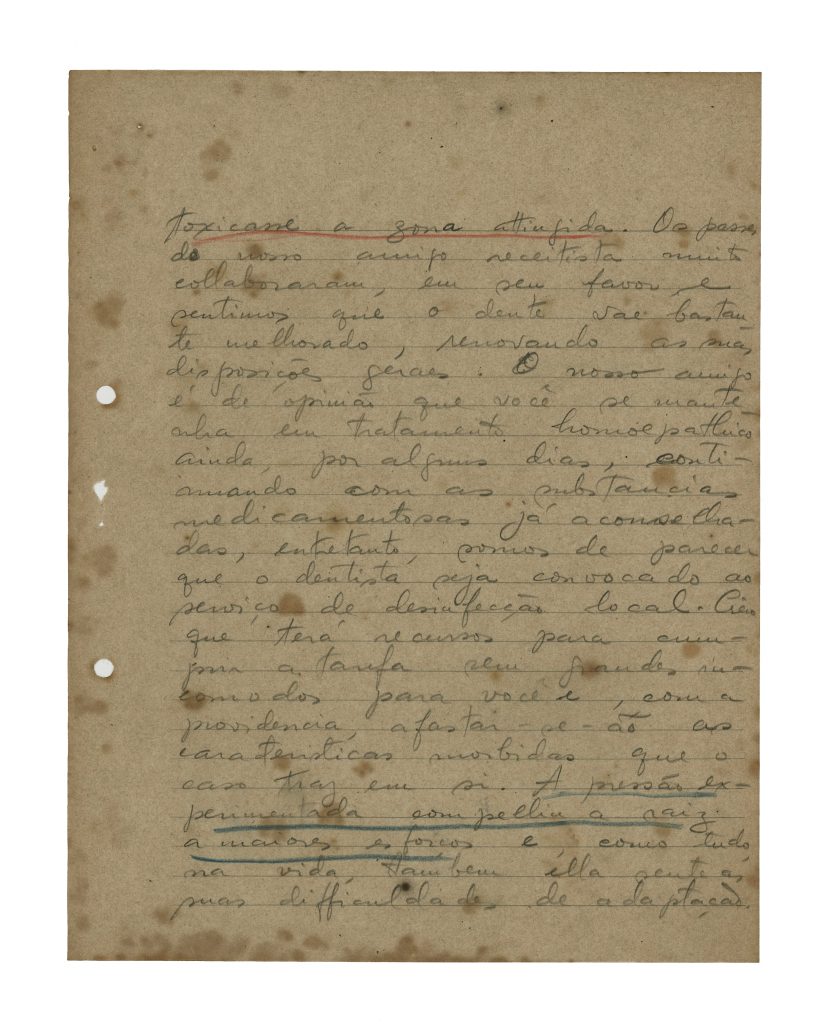 toxicasse a zona attingida. Os passes
do nosso amigo receitista muito
collaboraram, em seu favor, e
sentimos que o dente vae bastan
te melhorado, renovando as suas
disposições géraes. O nosso amigo
é de opinião que você se mante
nha em tratamento homoepathico
ainda, por alguns dias, conti-
nuando com as substancias
medicamentosas já aconselha-
das, entretanto, somos de parecer
que o dentista seja convocado ao
serviço de desinfecção local. Creio
que terá recursos para cum-
prir a tarefa sem grandes in-
comodos para você e, com a
providencia, afastar-se-ão as
caracteristicas morbidas que o
caso traz em si. A pressão ex-
perimentada compelliu a raiz
a maiores esforços e, como tudo
na vida, tambem ella sente as
suas difficuldades de adaptação.